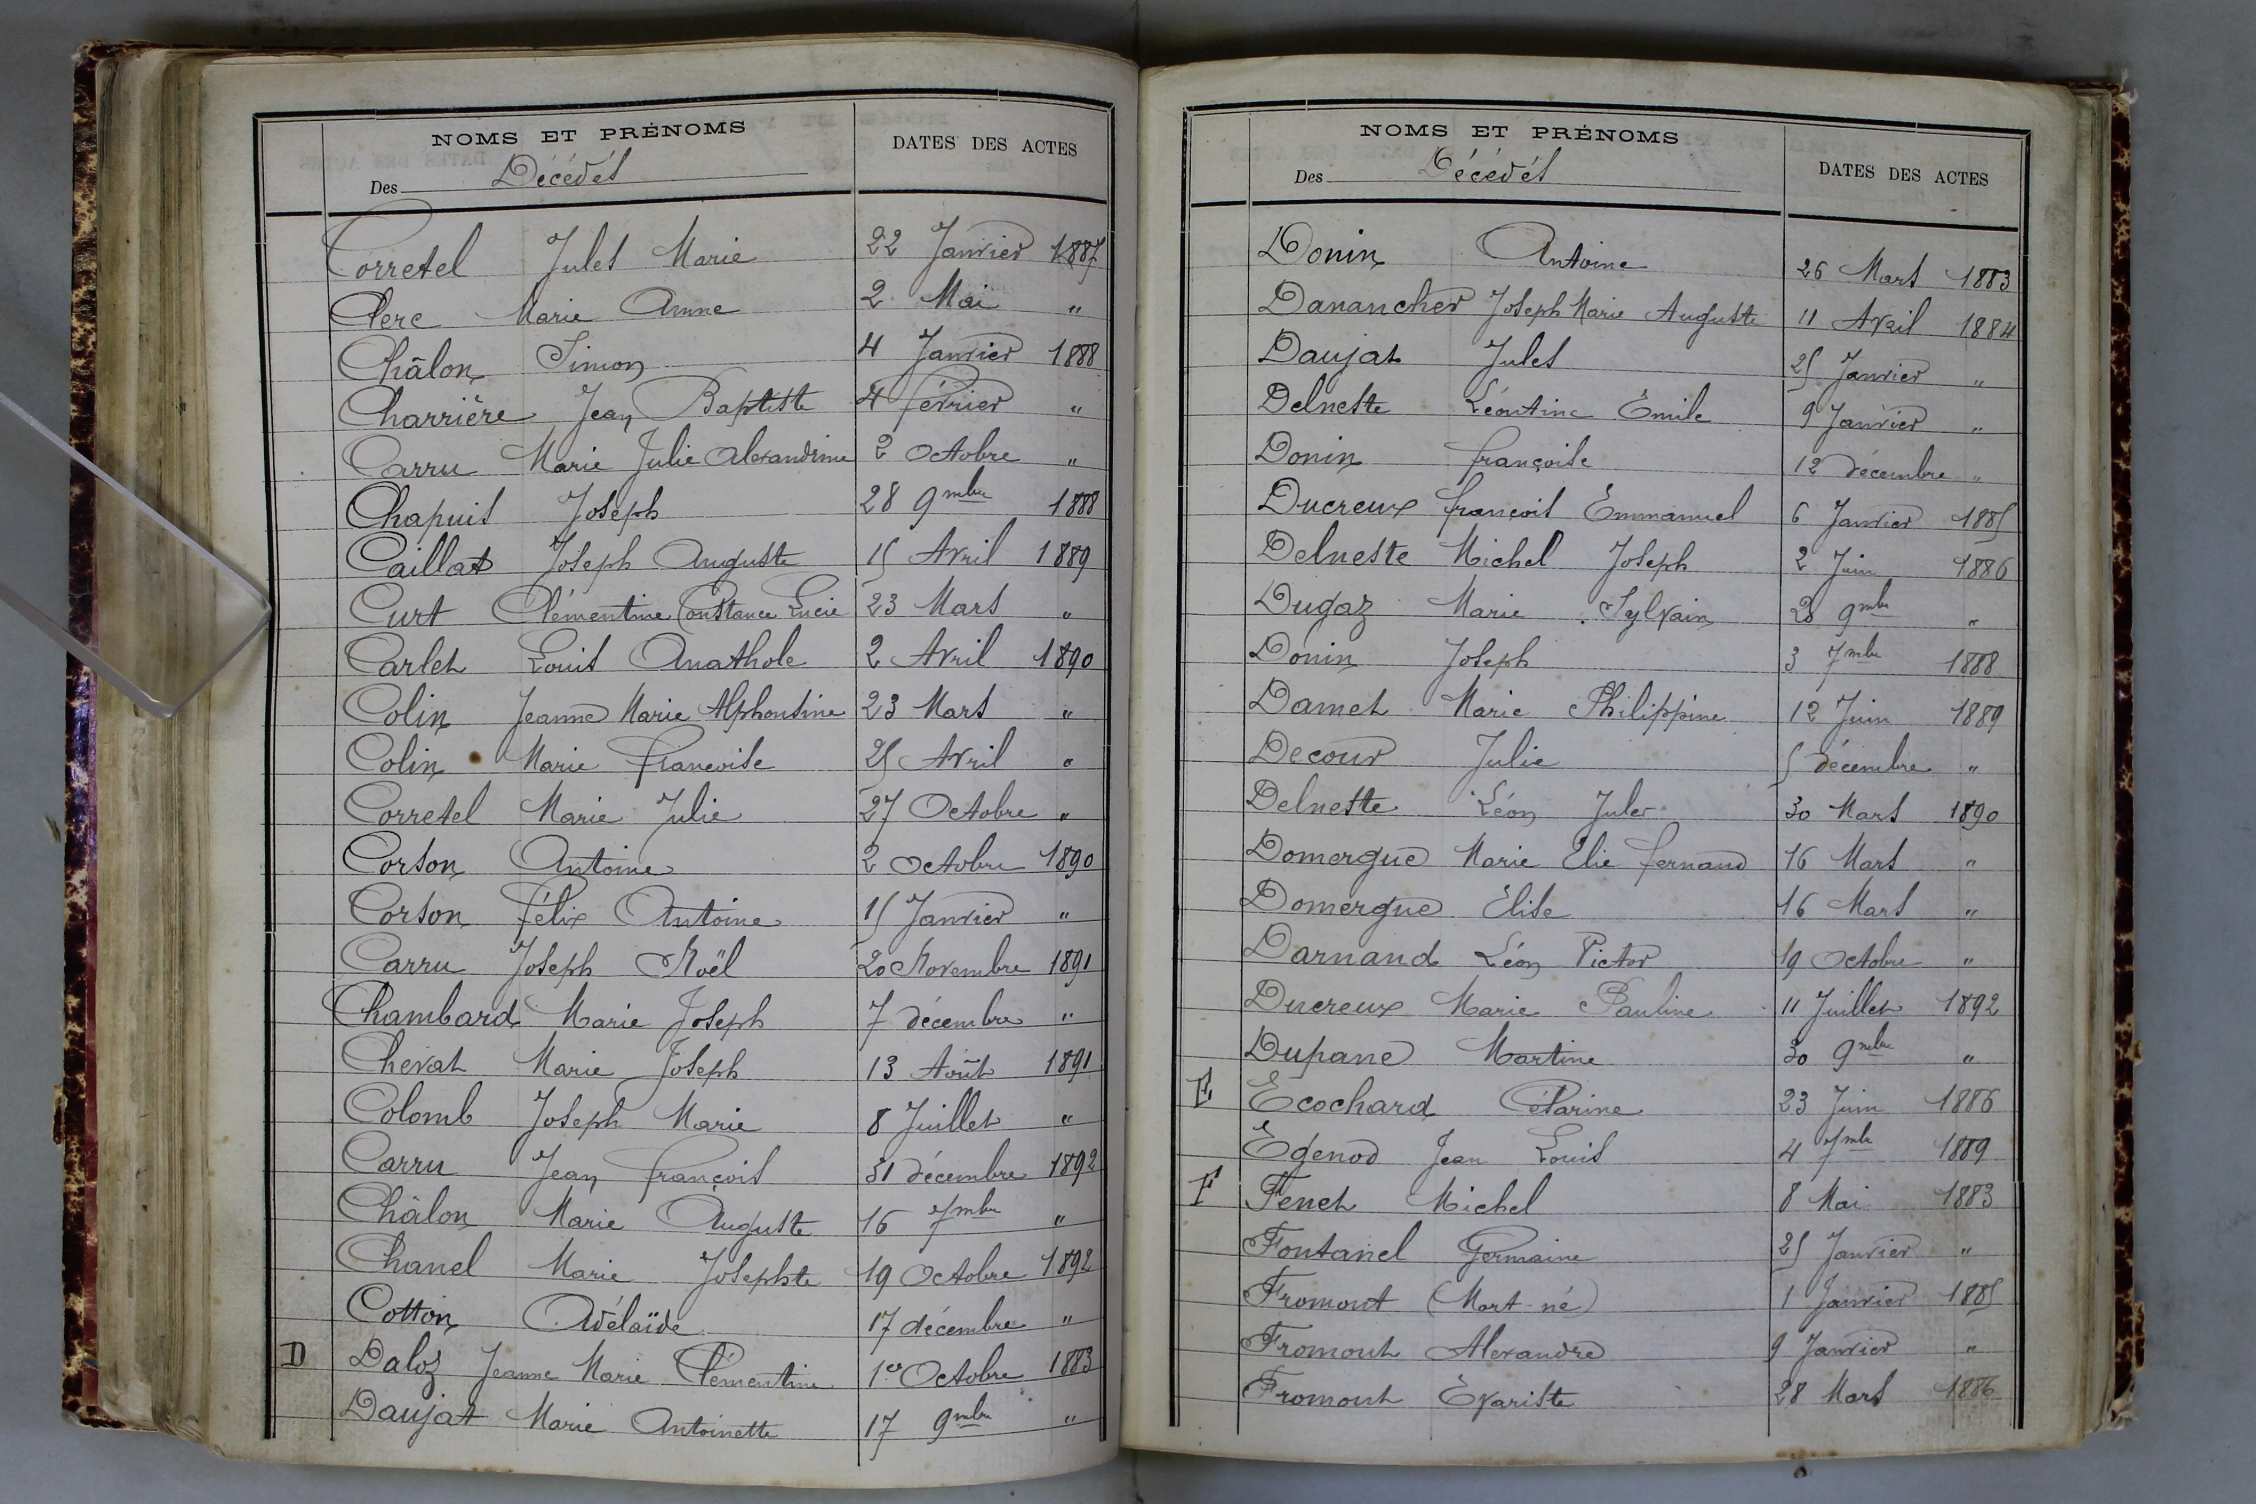 NOMS ET PRÉNOMS
DATES DES ACTES
Des Décédés
Corretel Jules Marie 22 Janvier 1887
Clerc Marie Anne 2 Mai "
Châlon Simon 4 Janvier 1888
Charrière Jean Baptiste 4 février "
Carru Marie Julie Alexandrine 2 Octobre "
Chapuis Joseph 28 9mbre 1888
Caillat Joseph Auguste 15 Avril 1889
Curt Clémentine Constance Lucie 23 Mars "
Carlet Louis Anathole 2 Avril 1890
Colin Jeanne Marie Alphonsine 23 Mars "
Colin Marie Françoise 25 Avril "
Corretel Marie Julie 27 Octobre "
Corson Antoine 2 Octobre 1890
Corson Félix Antoine 15 Janvier "
Carru Joseph Noël 20 Novembre 1891
Chambard Marie Joseph 7 décembre "
Chevat Marie Joseph 13 Août 1891
Colomb Joseph Marie 8 Juillet "
Carru Jean François 31 décembre 1892
Châlon Marie Auguste 16 7mbre "
Chanel Marie Josephte 19 Octobre 1892
Cotton Adélaïde 17 décembre "
D Daloz Jeanne Marie Clémentine 1er Octobre 1883
Daujat Marie Antoinette 17 9mbre "
NOMS ET PRÉNOMS
DATES DES ACTES
Des Décédés
Donin Antoine 26 Mars 1883
Danancher Joseph Marie Auguste 11 Avril 1884
Daujat Jules 25 Janvier "
Delneste Léontine Émile 9 Janvier "
Donin Françoise 12 décembre "
Ducreux François Emmanuel 6 Janvier 1885
Delneste Michel Joseph 2 Juin 1886
Dugaz Marie Sylvain 28 9mbre "
Donin Joseph 3 7mbre 1888
Damet Marie Philippine 12 Juin 1889
Decour Julie 5 décembre "
Delneste Léon Jules 30 Mars 1890
Domergue Marie Elie Fernand 16 Mars "
Domergue Élise 16 Mars "
Darnand Léon Victor 19 Octobre "
Ducreux Marie Pauline 11 Juillet 1892
Dupane Martine 30 9mbre "
E Ecochard Césarine 23 Juin 1886
Egenod Jean Louis 4 7mbre 1889
F Fenet Michel 8 Mai 1883
Fontanel Germaine 25 Janvier "
Fromont (Mort-né) 1 Janvier 1885
Fromont Alexandre 9 Janvier "
Fromont Evariste 28 Mars 1886